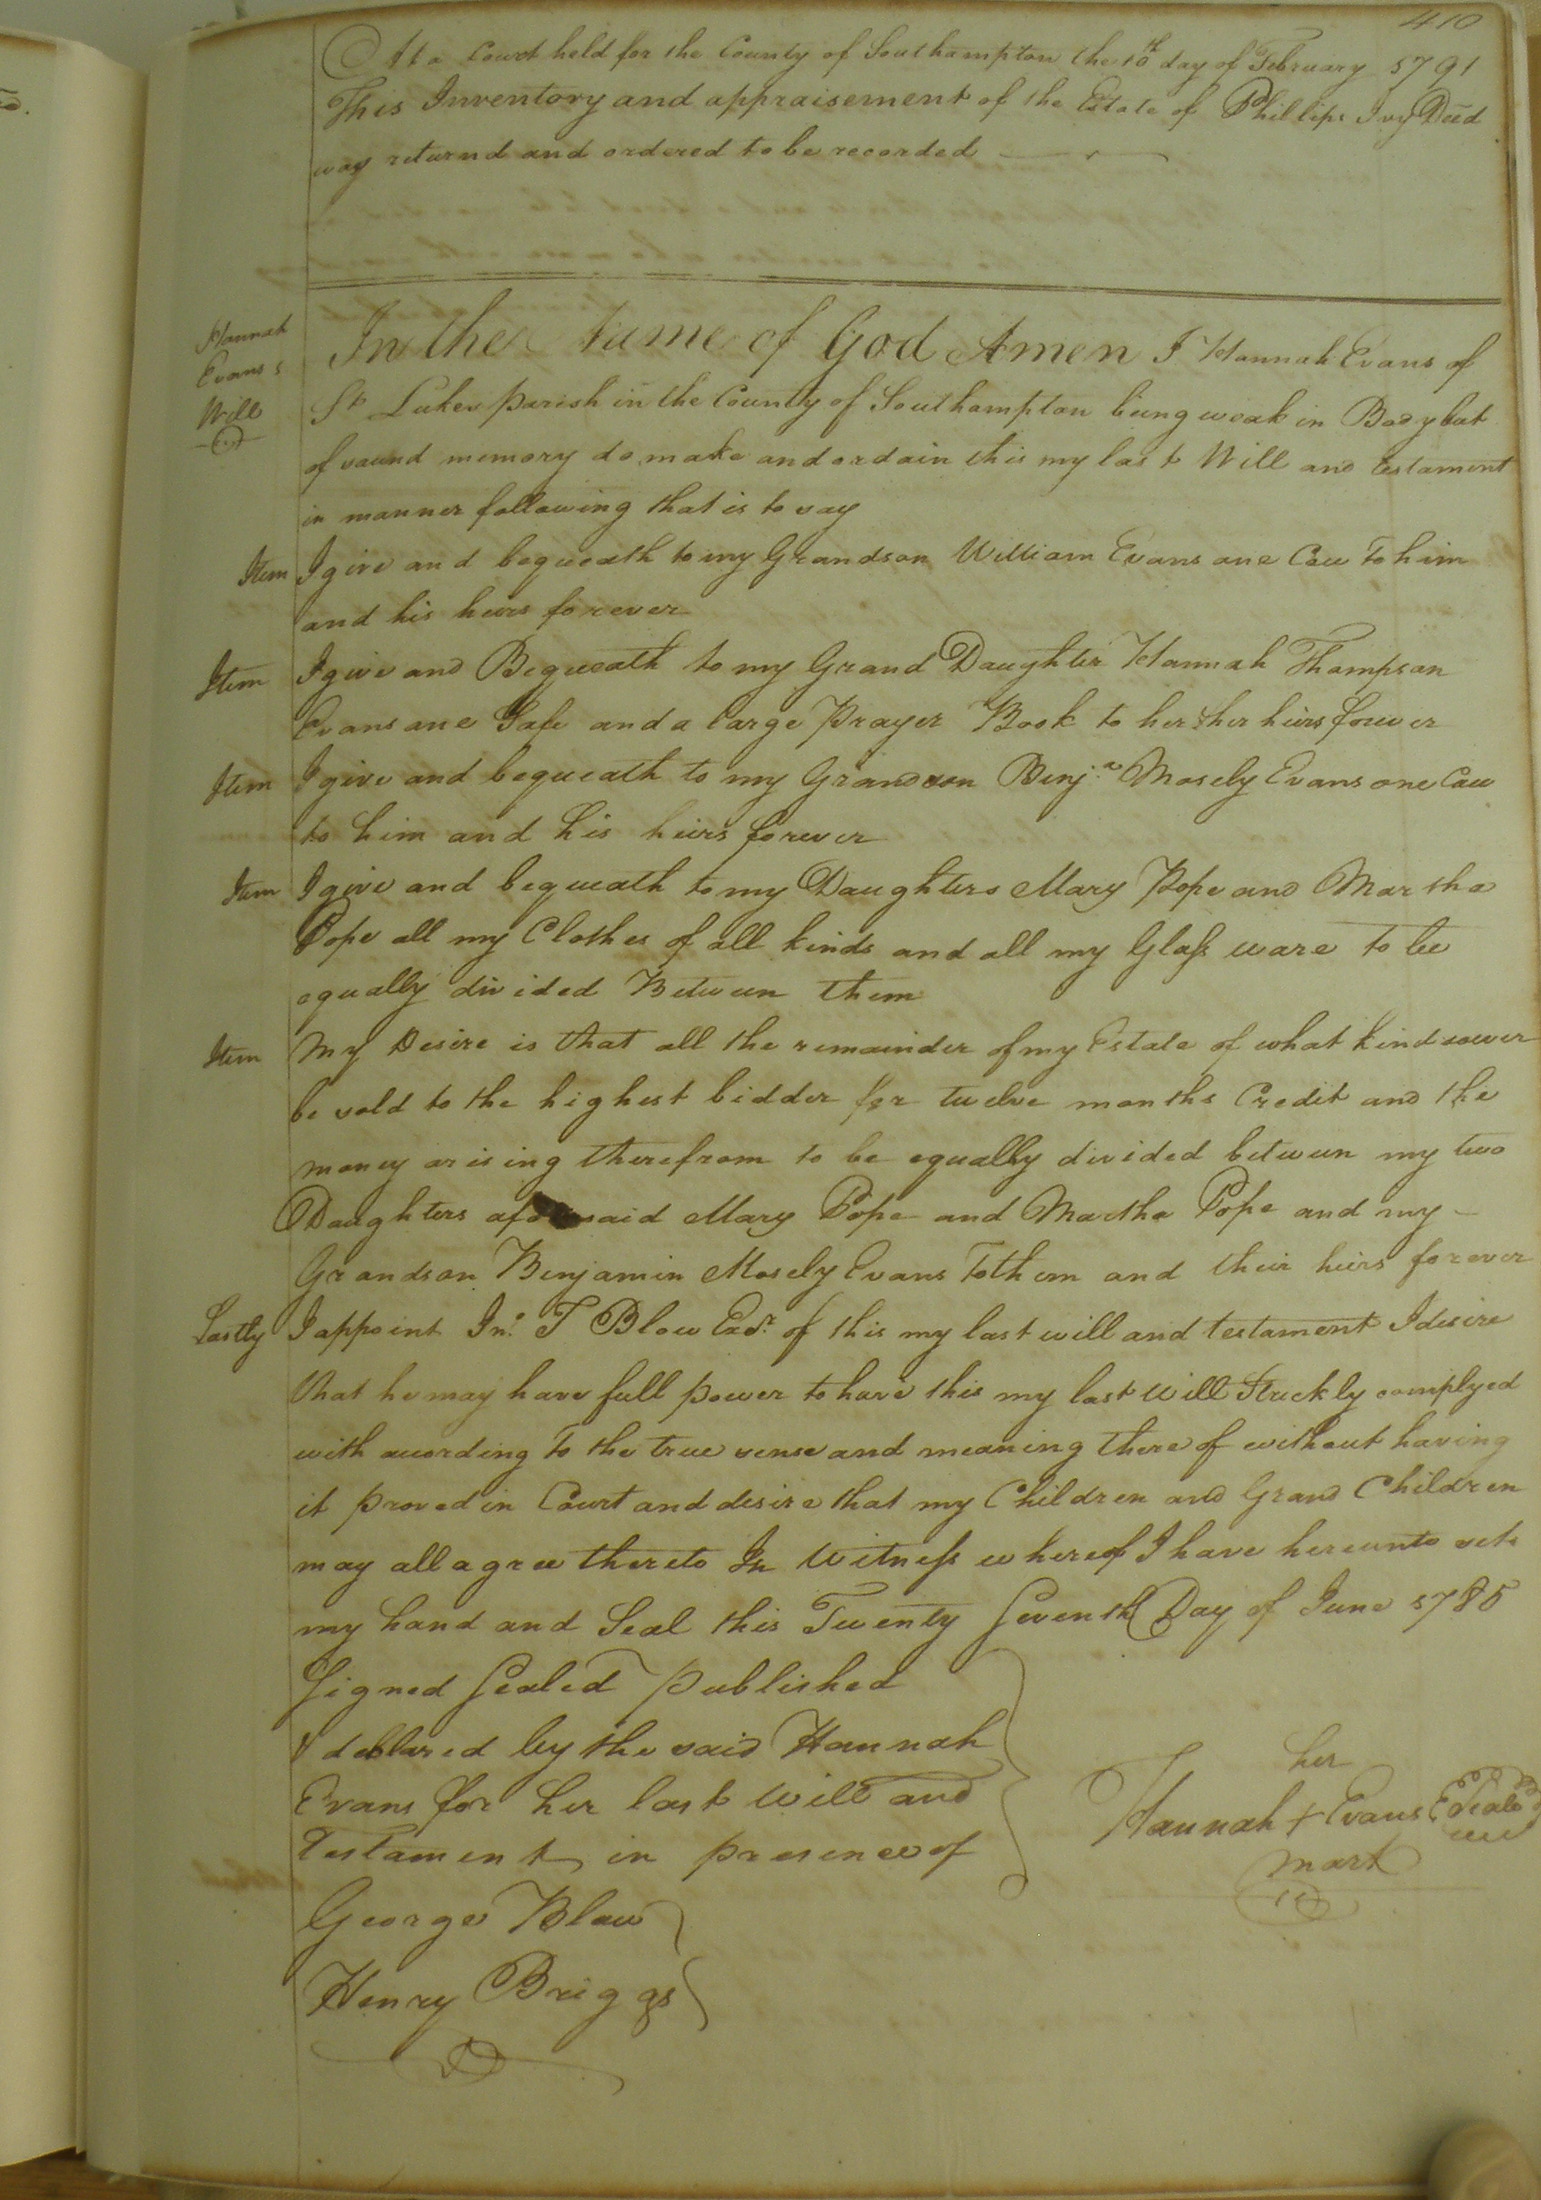 410
At a Court held for the County of Southampton the 10th day of February 1791
This Inventory and appraisement of the Estate of Phillips Ivy Decd
way returnd and ordered to be recorded
Hannah
Evans s
Will
In the Name of God Amen I Hannah Evans of
St Lukes parish in the County of Southampton being weak in Body but
of sound memory do make and ordain this my last Will and testament
in manner following that is to say
Item I give and bequeath to my Grandson William Evans one Cow to him
and his heirs forever
Item I give and Bequeath to my Grand Daughter Hannah Thompson
Evans one Safe and a large Prayer Book to her & her heirs forever
Item I give and bequeath to my Grandson Benja Mosely Evans one Cow
to him and his heirs forever
Item I give and bequeath to my Daughters Mary Pope and Martha
Pope all my Clothes of all kinds and all my Glass ware to be
equally divided Between them
Item My Desire is that all the remainder of my Estate of what kind sover
be sold to the highest bidder for twelve months Credit and the
money arising therefrom to be equally divided between my two
Daughters aforesaid Mary Pope and Martha Pope and my
Grandson Benjamin Mosely Evans To them and their heirs forever
Lastly I appoint Jno. T Blow Exor. of this my last will and testament I desire
that he may have full power to have this my last Will Strickly complyed
with according to the true sense and meaning there of without having
it proved in Court and desire that my Children and Grand Children
may all agree thereto In Witness whereof I have hereunto set
my hand and Seal this Twenty Seventh Day of June 1785
Signed Sealed published
& declared by the said Hannah
Evans for her last Will and
Testament in presence of
her
Hannah + Evans Seal
mark
George Blow
Henry Briggs